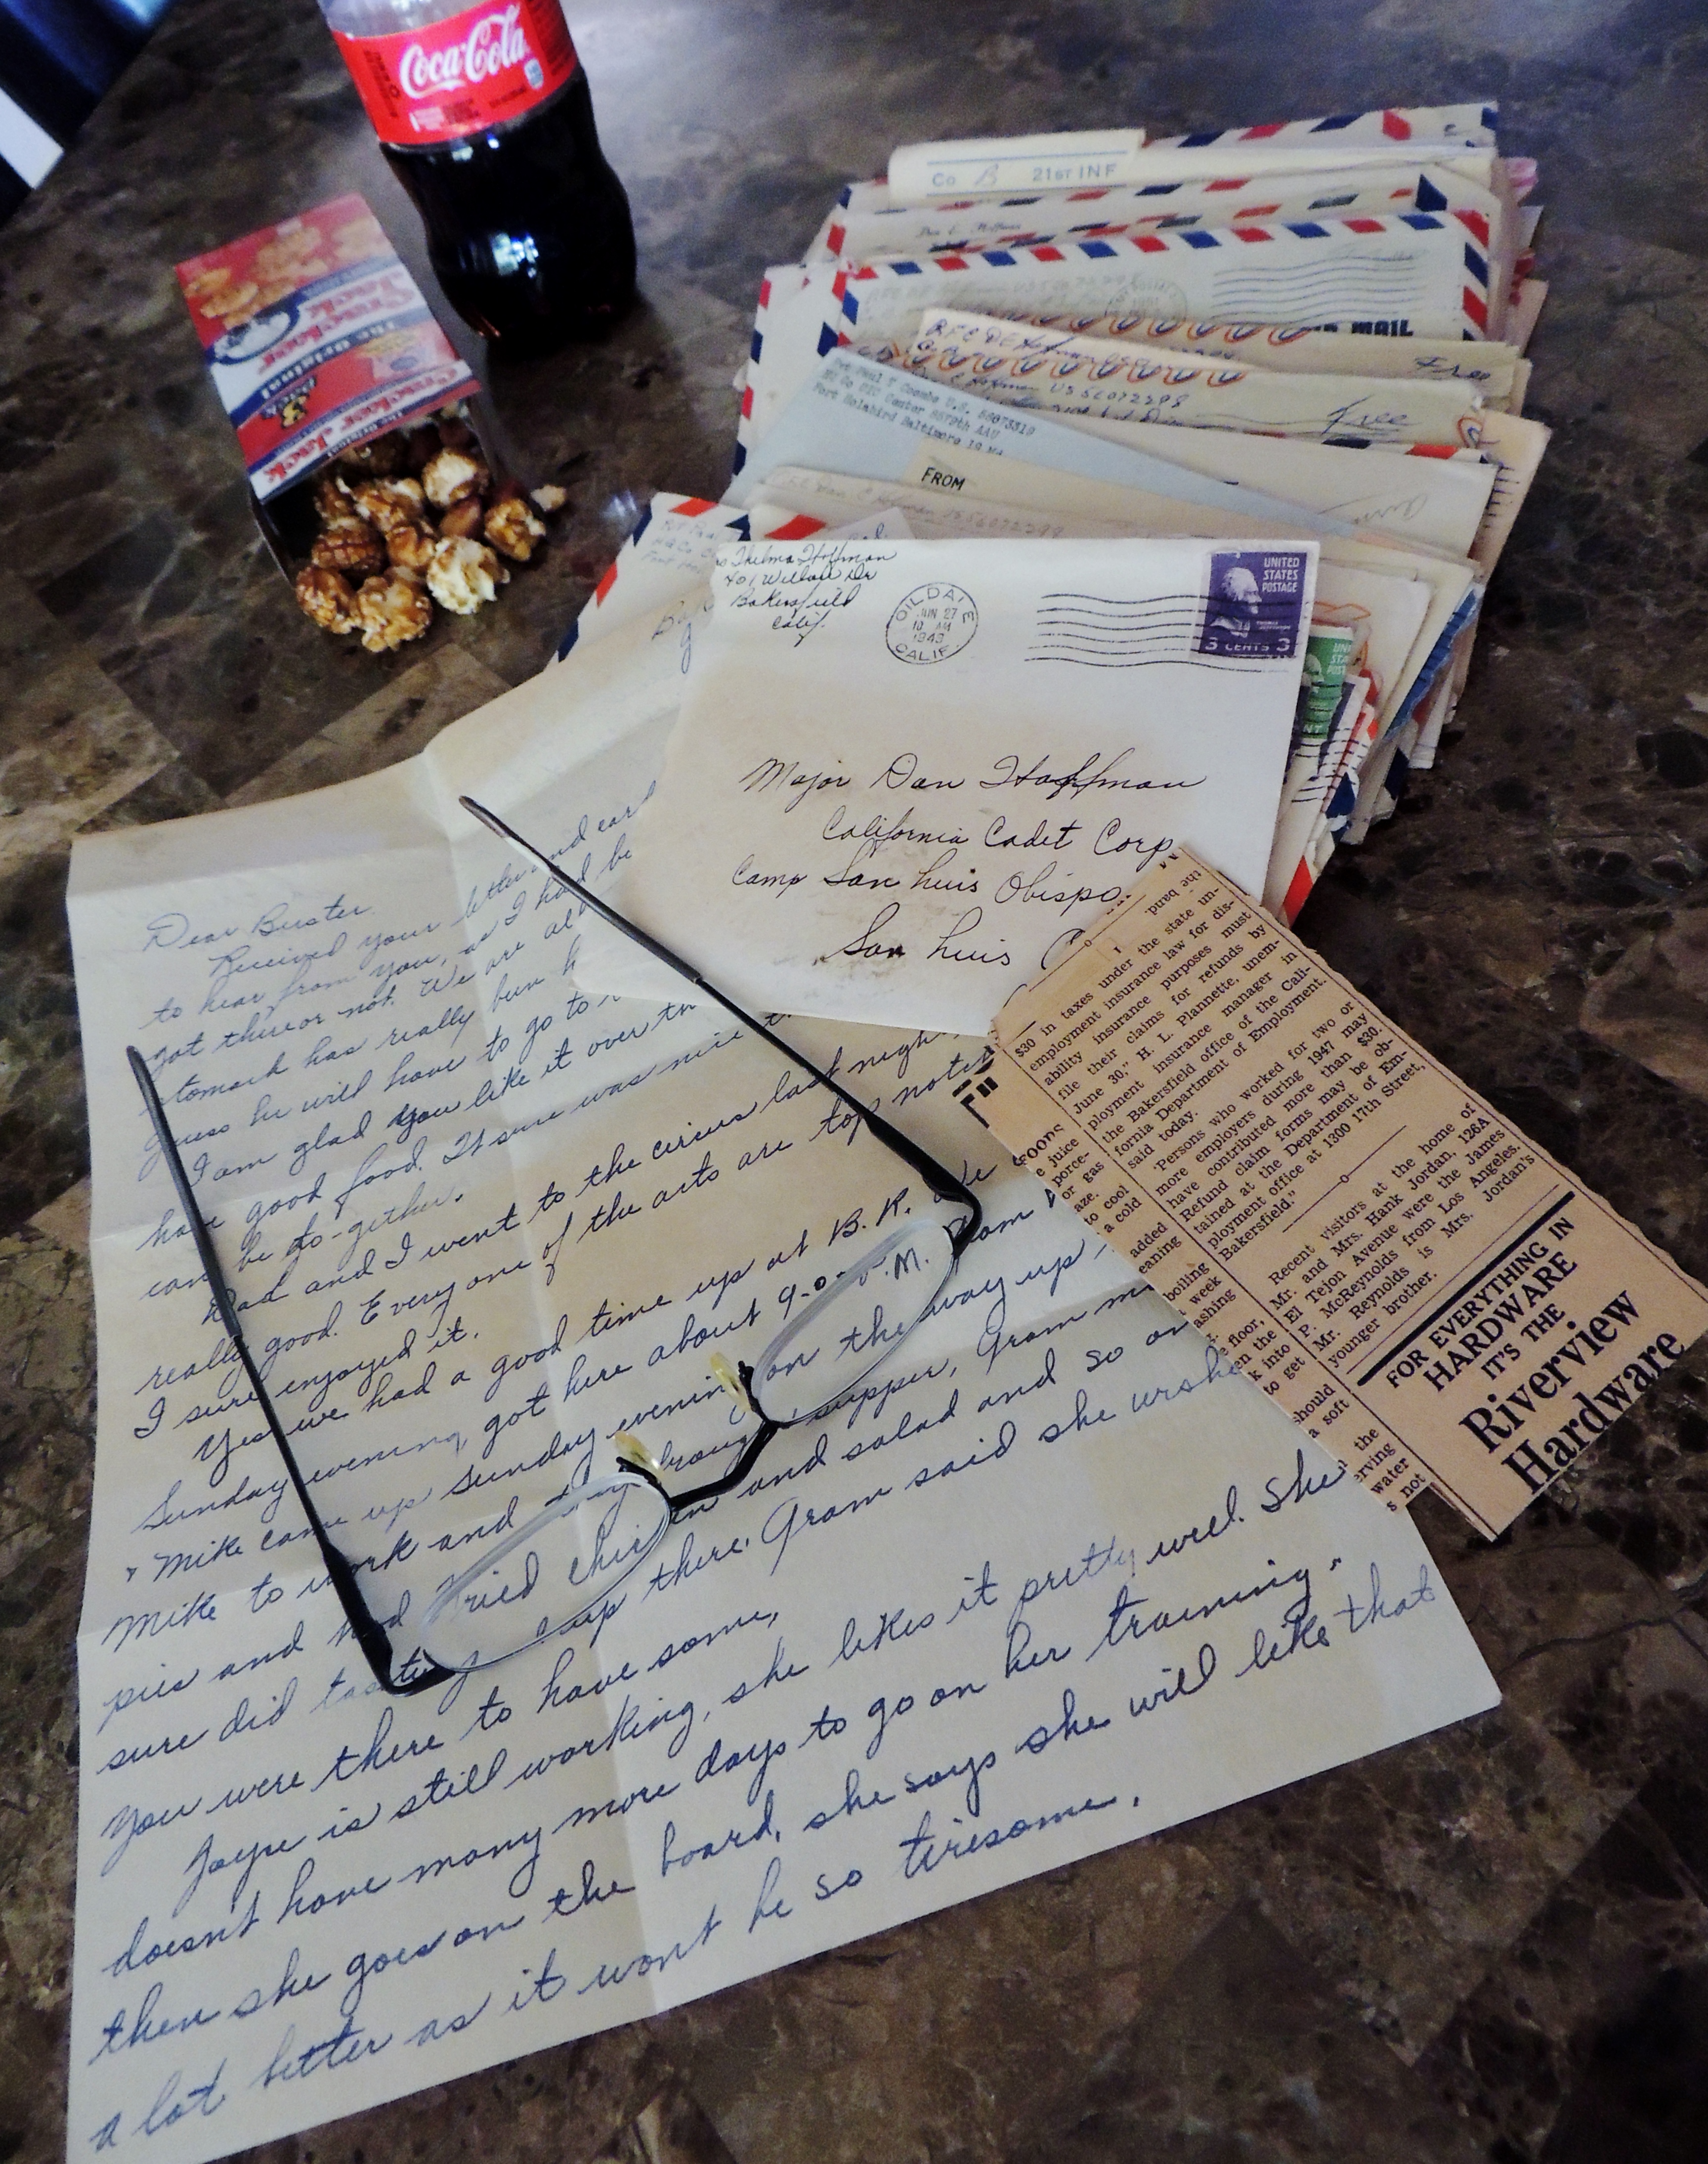 Coca-Cola
The Original
Cracker
Jack
Co B 21ST INF
MAIL
Free
Dan E Hoffman US56072298
Free
Pvt Paul T Coombs U.S. 56073319
Fort Holabird Baltimore 19
FROM
Thelma Hoffman
401 Willow Dr
Bakersfield
Calif.
OILDALE
JUN 27
10 AM
1949
CALIF.
UNITED
STATES
POSTAGE
3 CENTS 3
Major Dan Hoffman
California Cadet Corp.
Camp San Luis Obispo.
San Luis O
Dear Buster
Received your letter and card
to hear from you, as I had be
got there or not. We are all
stomach has really been h
guess he will have to go to
I am glad you like it over th
have good food. It sure was nice t
can be to-gether.
Dad and I went to the circus last night,
really good. Every one of the acts are top notch
I sure enjoyed it.
Yes we had a good time up at B.R. We
Sunday evening, got here about 9:00 P.M. Gram
"Mike came up Sunday evening on the way up,
Mike to work and they brought supper, Gram m
pies and had fried chicken and salad and so on
sure did taste up there. Gram said she wishe
you were there to have some,
Joye is still working, she likes it pretty well. She
doesn't have many more days to go on her training"
then she goes on the board, she says she will like that
a lot better as it wont be so tiresome.
$30 in taxes under the state un-
employment insurance law for dis-
ability insurance purposes must
file their claims for refunds by
June 30," H. L. Plannette, unem-
ployment insurance manager in
the Bakersfield office of the Cali-
fornia Department of Employment.
said today.
"Persons who worked for two or
more employers during 1947 may
have contributed more than $30.
Refund claim forms may be ob-
tained at the Department of Em-
ployment office at 1300 17th Street,
Bakersfield."
Recent visitors at the home of
Mr. and Mrs. Hank Jordan, 126A
El Tejon Avenue were the James
P. McReynolds from Los Angeles.
Mr. Reynolds is Mrs. Jordan's
younger brother.
FOR EVERYTHING IN
HARDWARE
IT'S THE
Riverview
Hardware
FOODS
e juice
porce-
or gas
aze.
to cool
a cold
added
eaning
boiling
week
ashing
e floor,
en the
k into
to get
should
a soft
the
erving
water
s not